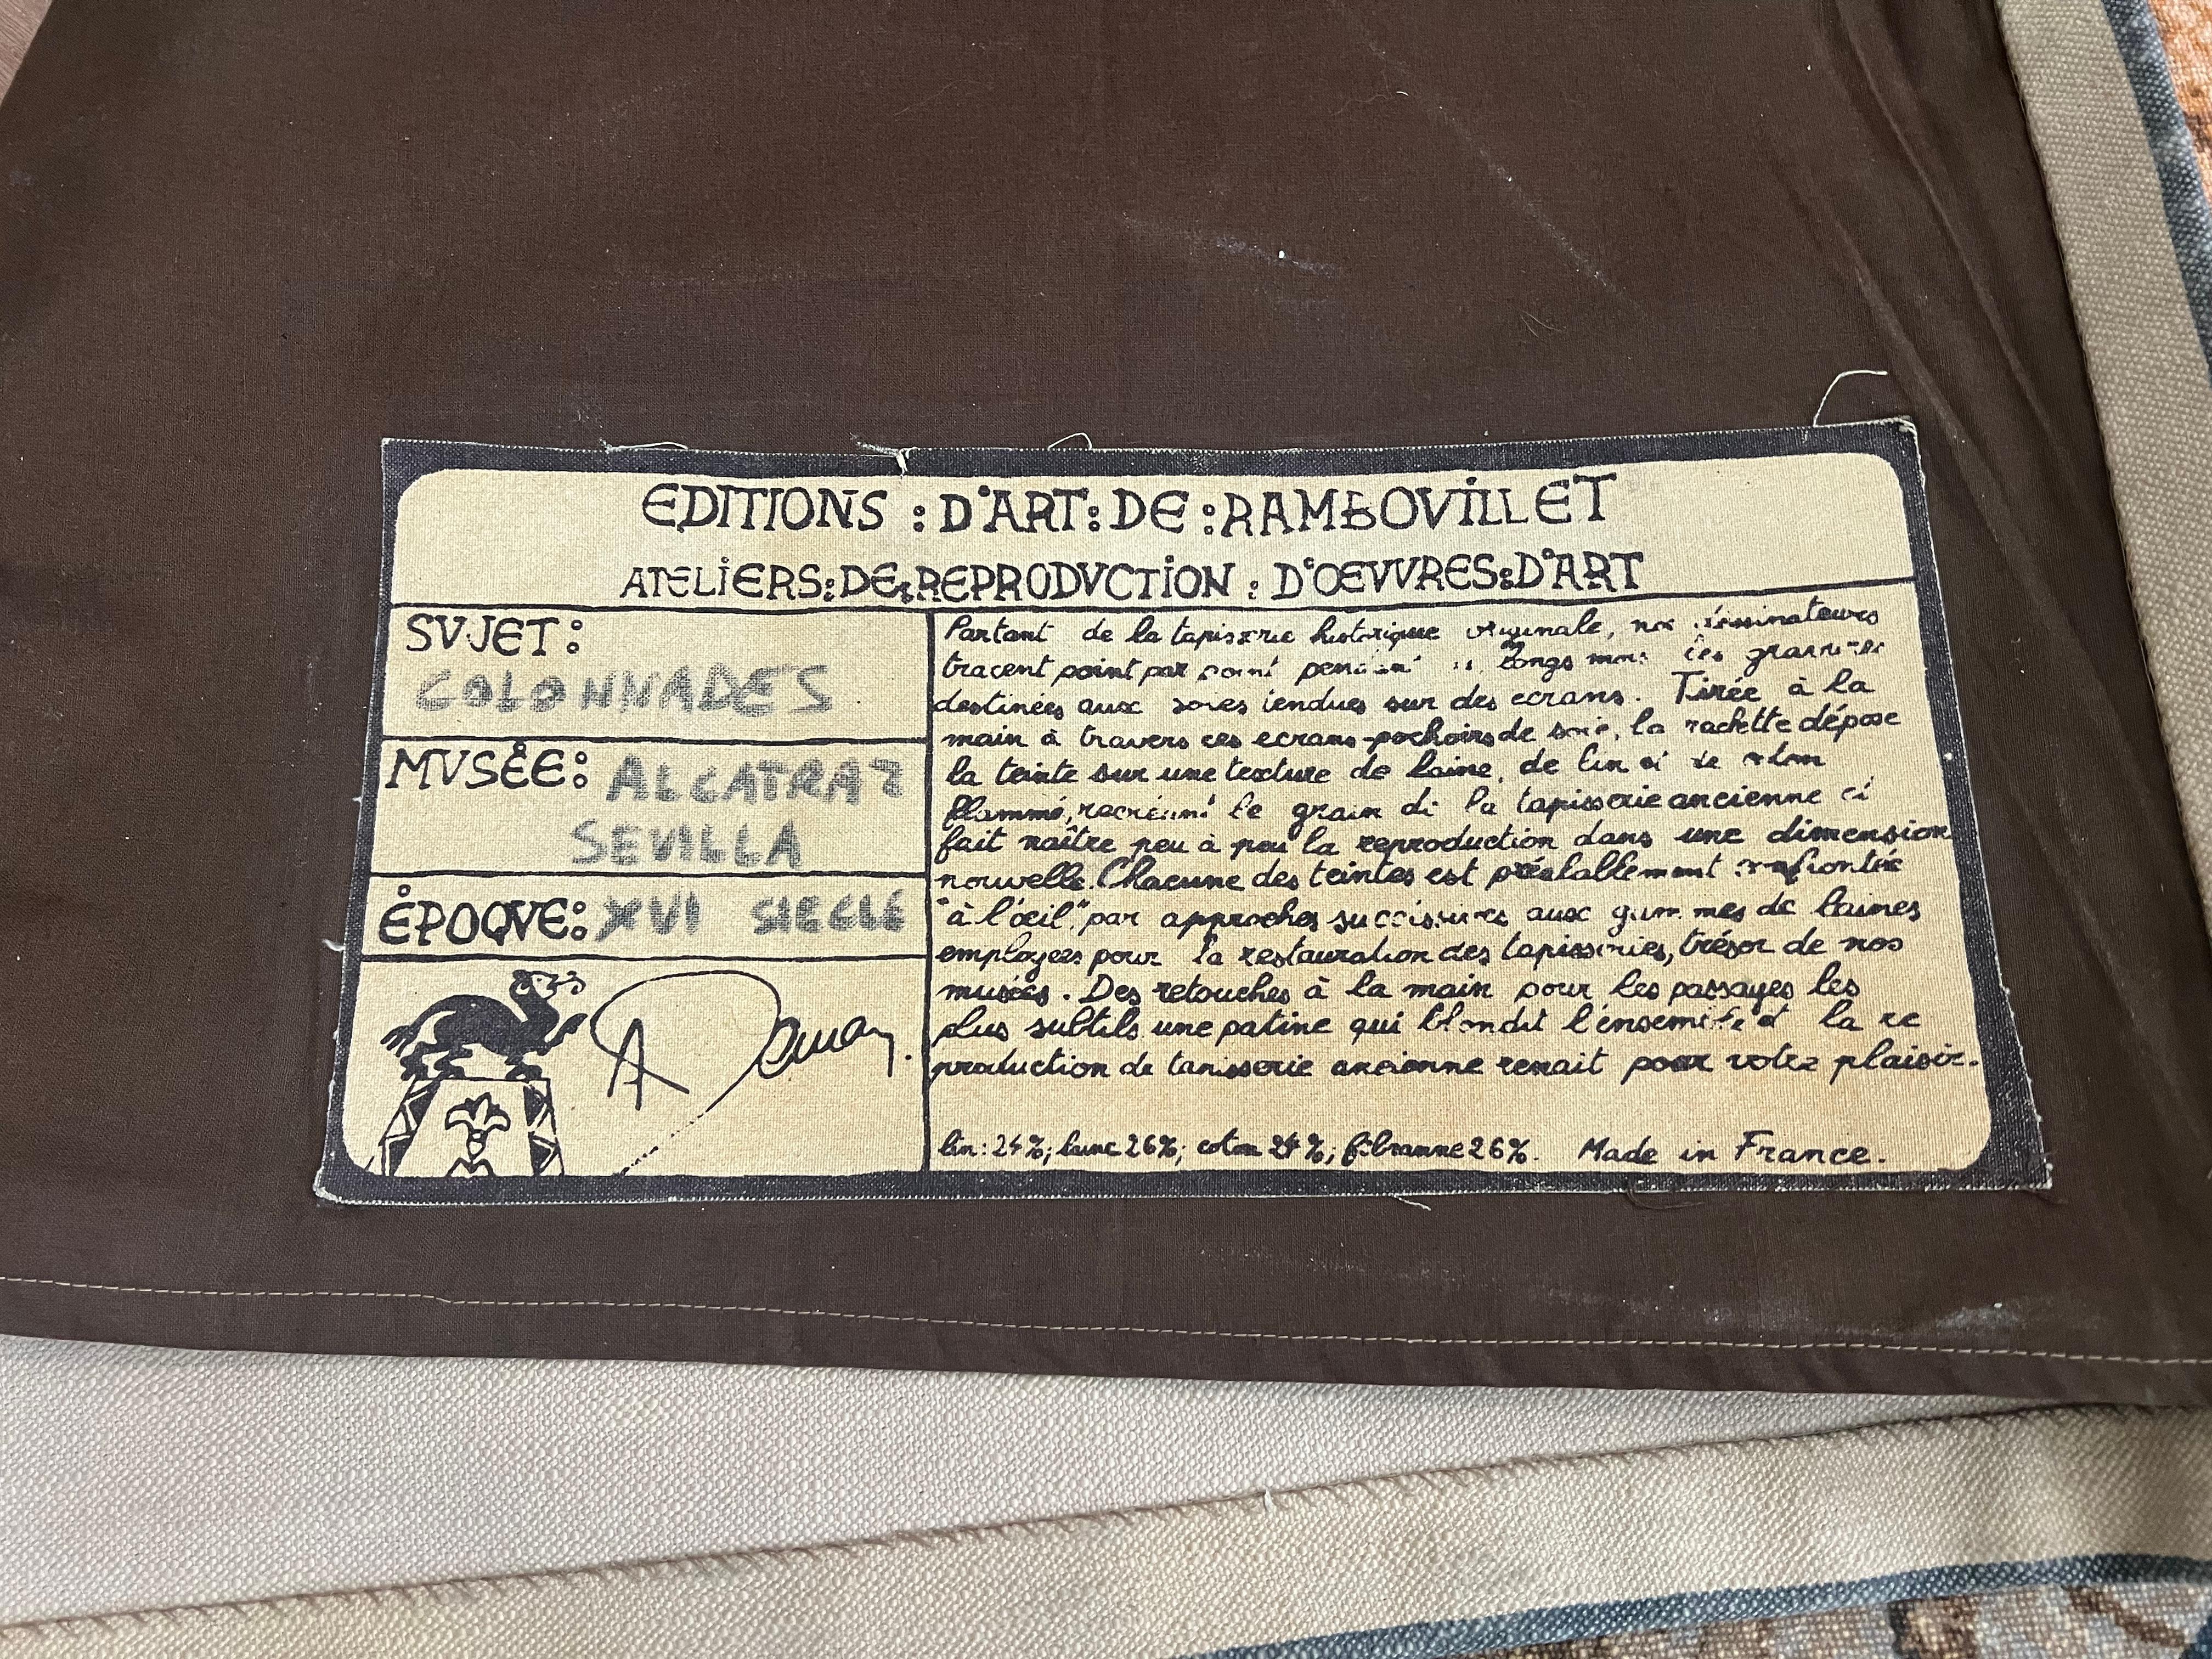 EDITIONS : D'ART : DE : RAMBOVILLET
ATELIERS : DE : REPRODVCTION : D'ŒVVRES : D'ART
SVJET :
COLONNADES
MVSÉE : ALCATRAZ
SEVILLA
ÉPOQVE : XVI SIECLE
Partant de la tapisserie historique originale, nos dessinateurs
tracent point par point pendant longs mois les
destinées aux soies tendues sur des ecrans. Tirée à la
main à travers ces ecrans-pochoirs de soie, la raclette dépose
la teinte sur une texture de laine, de lin et de
flammé, recréant le grain de la tapisserie ancienne et
fait naître peu à peu la reproduction dans une dimension
nouvelle. Chacune des teintes est préalablement
"à l'œil" par approches successives aux gammes de laines
employees pour la restauration des tapisseries, trésor de nos
musées. Des retouches à la main pour les passages les
plus subtils une patine qui blondit l'ensemble et la re
production de tapisserie ancienne renait pour votre plaisir.
lin: 24%; laine 26%; coton 24%; fibranne 26%. Made in France.